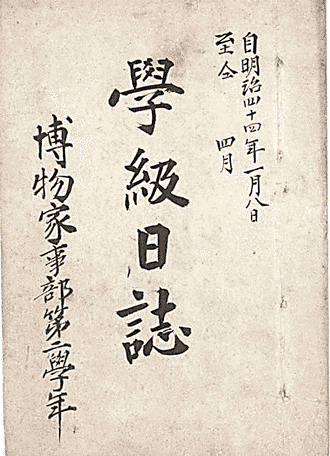 自明治四十四年一月八日
至仝　　四月
學級日誌
博物家事部第二學年